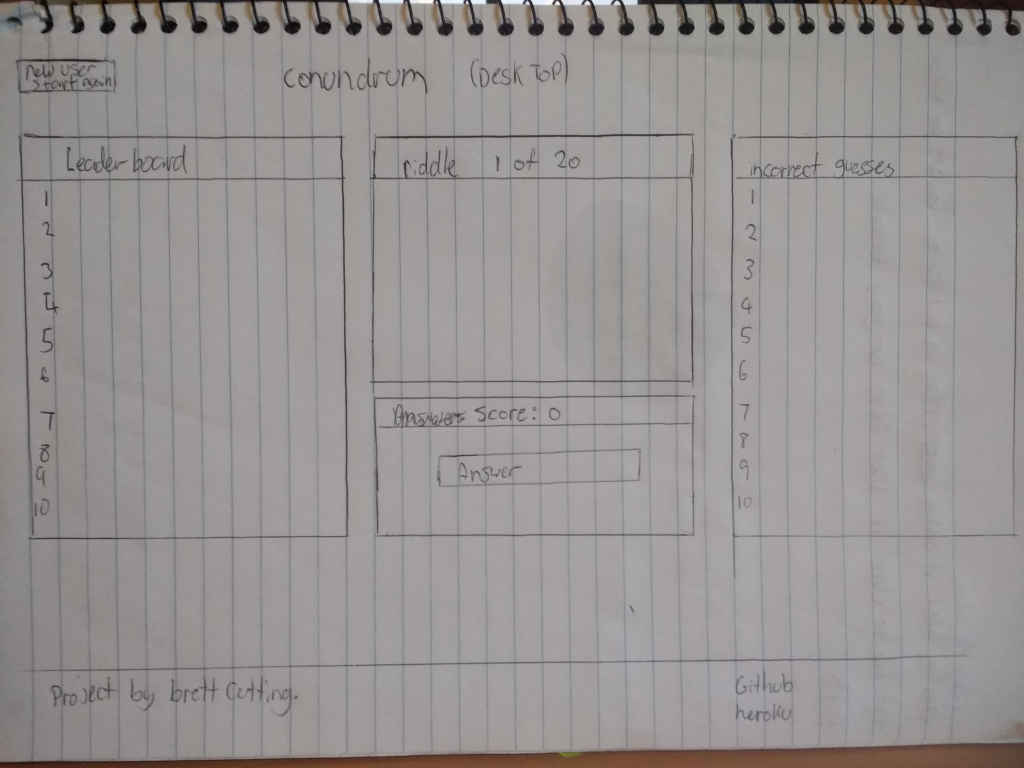 new user
start again
conundrum (Desk Top)
Leader board
1
2
3
4
5
6
7
8
9
10
riddle 1 of 20
Answer Score: 0
Answer
incorrect guesses
1
2
3
4
5
6
7
8
9
10
Project by brett Cutting.
Github
heroku